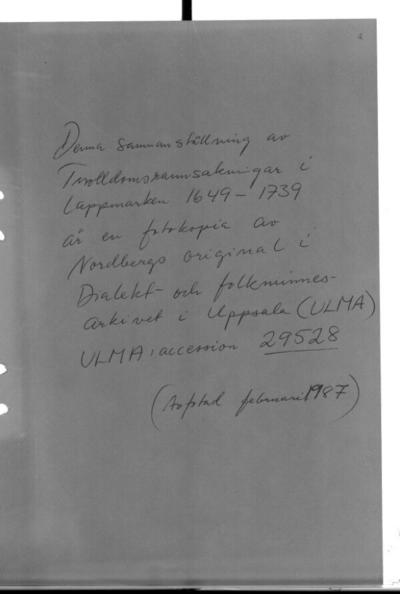 Denna sammanställning av
Trolldomsrannsakningar i
Lappmarken 1649-1739
är en fotokopia av
Nordbergs original i
Dialekt- och folkminnes-
arkivet i Uppsala (ULMA)
ULMA:accession 29528
februari 1987)